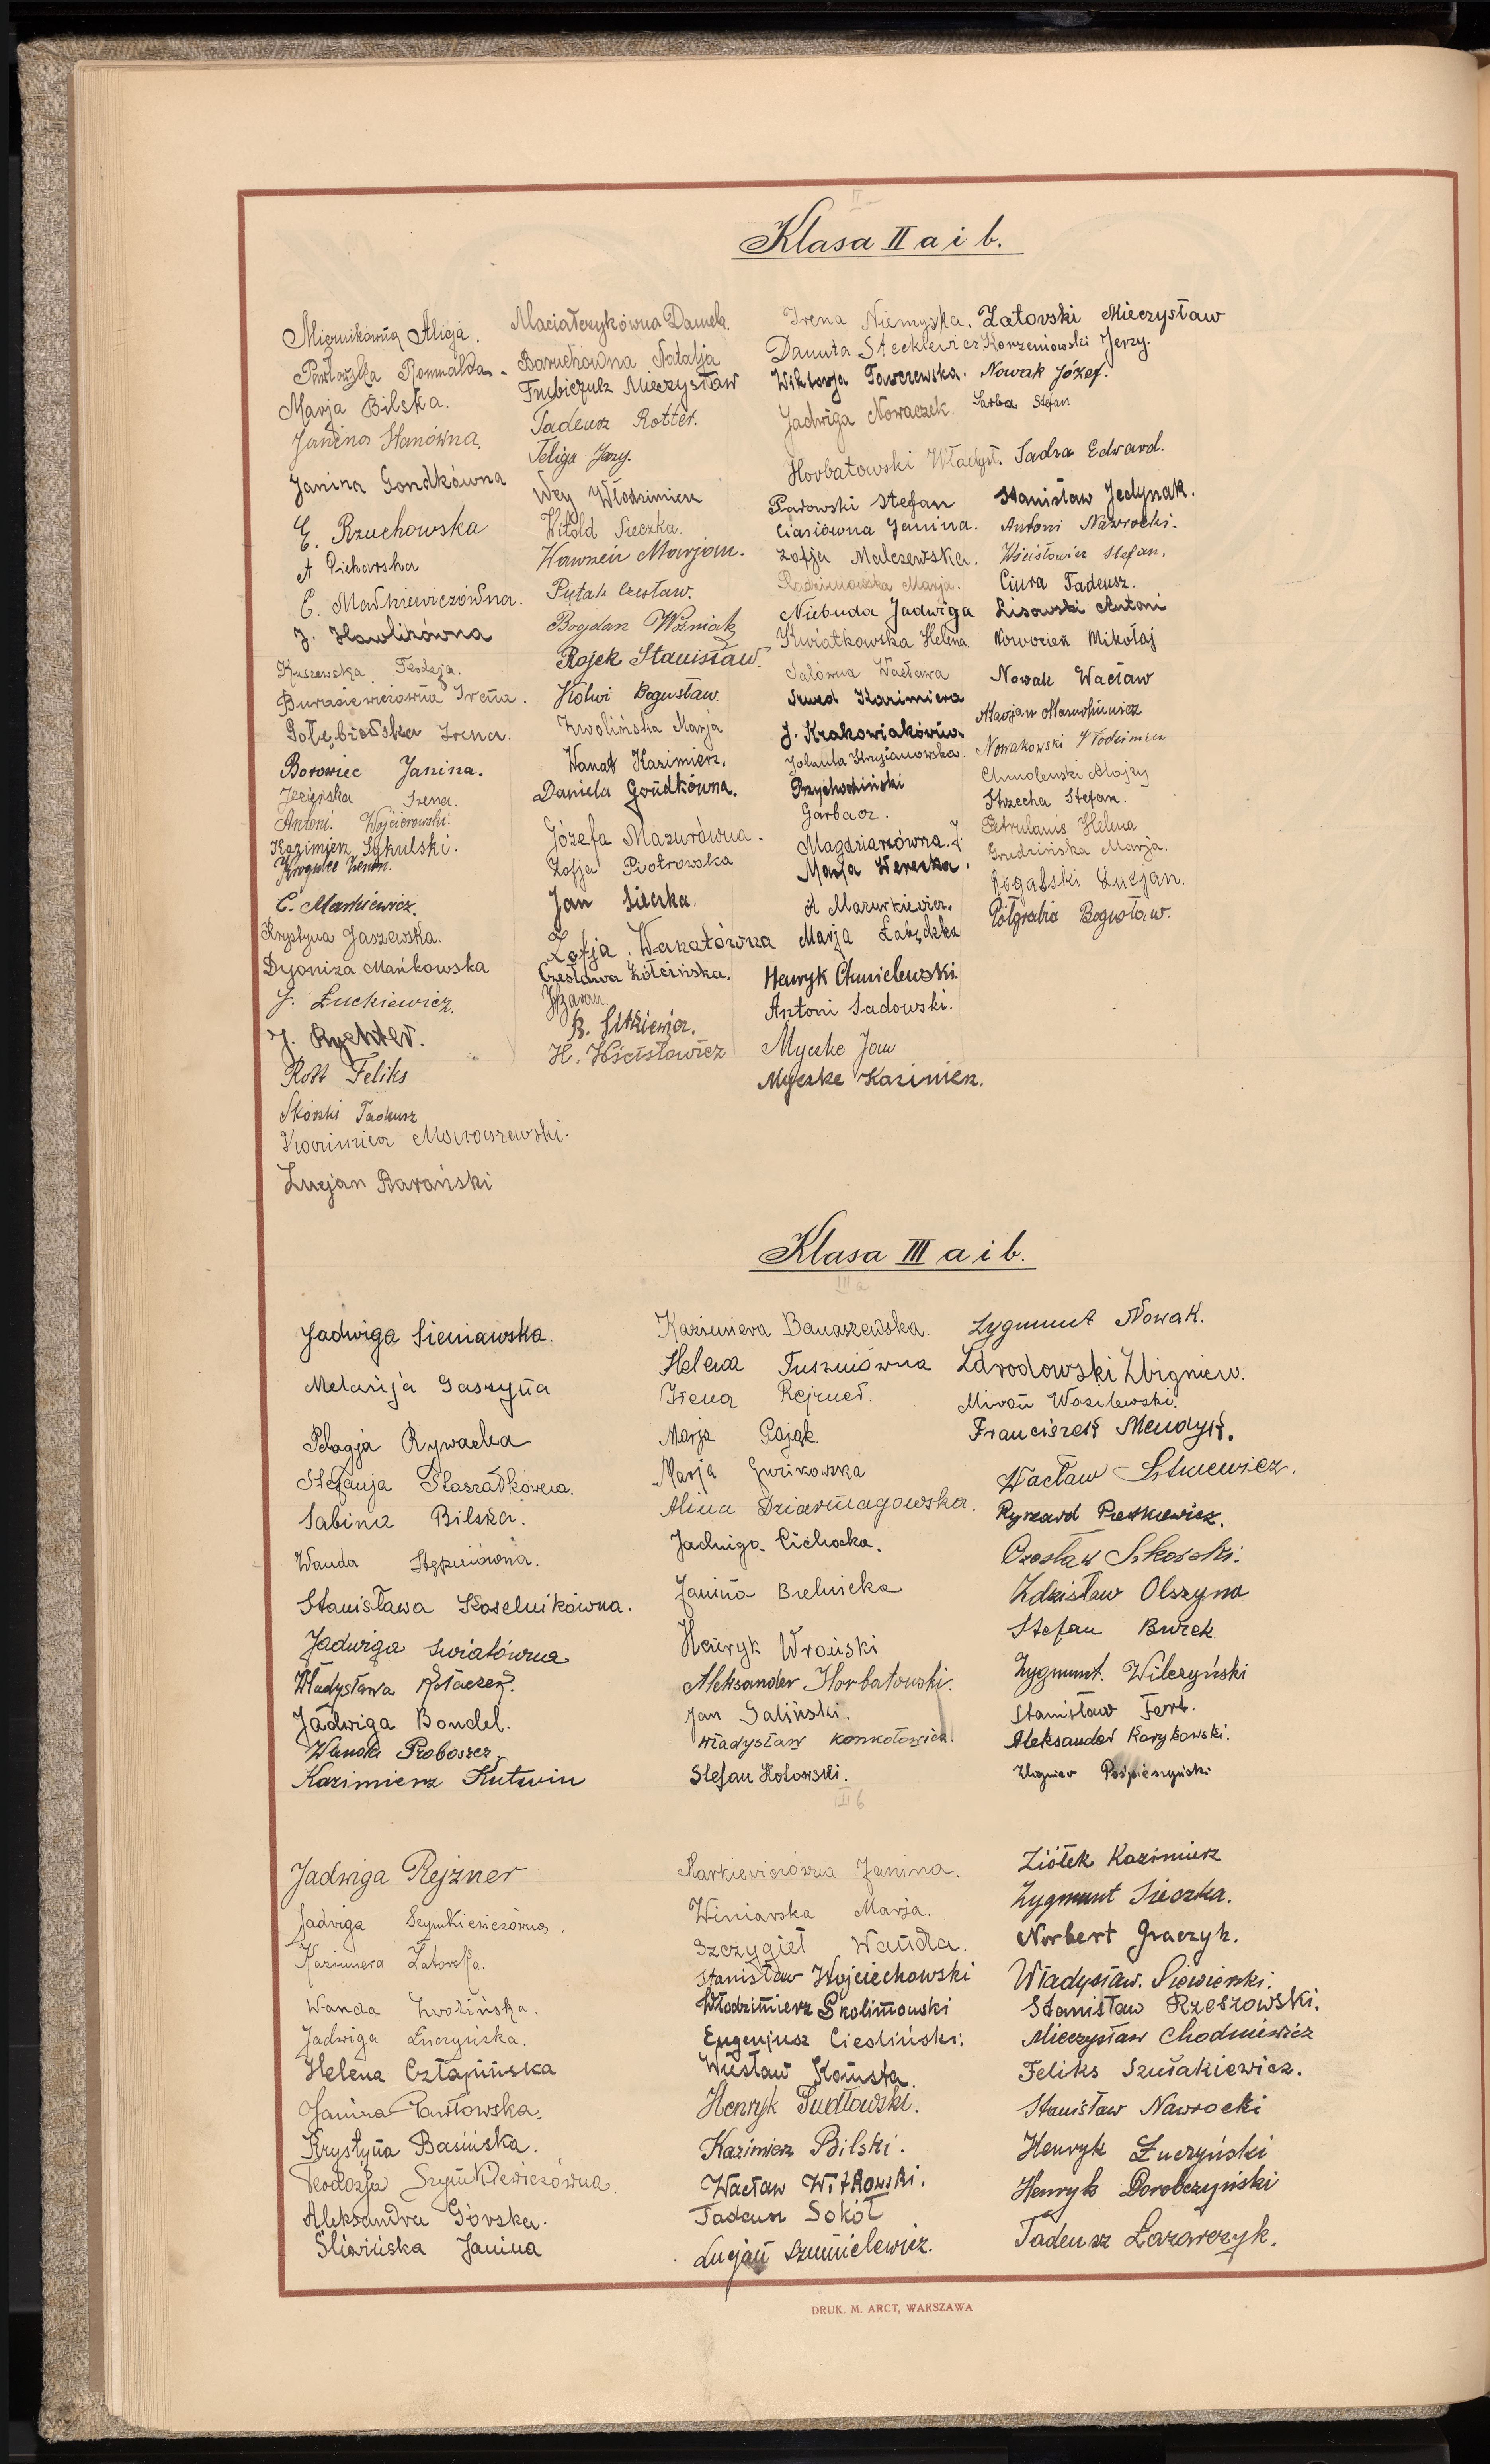 II
Klasa II a i b.
Miernikówna Alicja.
Pawłowska Romualda.
Marja Bilska.
Janina Stanówna.
Janina Gondkówna
E. Rzuchowska
A Piekarska
E. Markiewiczówna.
J. Hawlikówna
Kuszewska Teodozja.
Burasiewiczówna Irena.
Gołębiowska Irena.
Borowiec Janina.
Jezierska Irena.
Antoni Wojcierowski.
Kazimierz Sykulski.
Krogulec Zenon.
C. Markiewicz.
Krystyna Jaszewska.
Dyoniza Mańkowska
J. Łuckiewicz.
J. Rychter.
Rott Feliks
Skórski Tadeusz
Kazimierz Moraszewski.
Lucjan Barański
Maciałczykówna Daniela.
Baruchówna Natalja
Trubiczulz Mieczysław
Tadeusz Rotter.
Feliga Jerzy.
Wey Włodzimierz
Witold Sieczka.
Wawrzeń Marjan.
Piętak Czesław.
Bogdan Woźniak
Rojek Stanisław.
Kolwi Bogusław.
Zwolińska Marja
Wanat Kazimierz.
Daniela Gondkówna.
Józefa Mazurówna.
Zofja Piotrowska
Jan Sieczka.
Zofja Wanatówna
Czesława Żółcińska.
H. Baran.
B. Sitkiewicz.
H. Wścisłowicz
Irena Niemyska.
Danuta Steckiewicz
Wiktorja Tawczewska.
Jadwiga Nowaczek.
Horbatowski Władysł.
Parowski Stefan
Ciasiówna Janina.
Zofja Malczewska.
Radzimowska Marja.
Niebuda Jadwiga
Kwiatkowska Helena.
Salówna Wacława
Szwed Kazimiera
J. Krakowiakówna
Jolanta Krzyżanowska.
Przychodziński
Garbacz.
Magdziarzówna J.
Marja Werecka.
A Mazurkiewicz.
Marja Łabędzka
Henryk Chmielewski.
Antoni Sadowski.
Myczke Jan
Myczke Kazimierz.
Zatovski Mieczysław
Korzeniowski Jerzy.
Nowak Józef.
Sarba Stefan
Sadza Edward.
Stanisław Jedynak.
Antoni Nawrocki.
Wścisłowicz Stefan.
Ciura Tadeusz.
Lisowski Antoni
Noworień Mikołaj
Nowak Wacław
Marjan Marcinkiewicz
Nowakowski Włodzimierz
Chmolewski Alojzy
Strzecha Stefan.
Petrulanis Helena
Grudzińska Marja.
Rogalski Lucjan.
Półgrabia Bogusław.
Klasa III a i b.
III a
Jadwiga Sieniawska.
Melanja Gaszyna
Pelagja Rywacka
Stefanja Staszałkówna.
Sabina Bilska.
Wanda Stępniówna.
Stanisława Koselnikówna.
Jadwiga Światówna
Władysława Kołaczek.
Jadwiga Bondel.
Wanda Proboszcz.
Kazimierz Kutwin
Kazimiera Banaszewska.
Helena Tuszniówna
Irena Rejzner.
Marja Pająk.
Marja Gurikowska
Alina Dziarmagowska.
Jadwiga Cichocka.
Janina Bielnicka
Henryk Wroński
Aleksander Horbatowski.
Jan Galiński.
Władysław Konkołowicz.
Stefan Hołowski.
Zygmunt Nowak.
Zdrodowski Zbigniew.
Miron Wasilewski.
Franciszek Mendyk.
Wacław Litwiewicz.
Ryszard Pietkiewicz.
Czesław Sikorski.
Zdzisław Olszyna
Stefan Burek.
Zygmunt Wilczyński
Stanisław Fert.
Aleksander Karykowski.
Zbigniew Pośpieszyński
III b
Jadwiga Rejzner
Jadwiga Szymkiewiczówna.
Kazimiera Zatorska.
Wanda Zwolińska.
Jadwiga Łuczyńska.
Helena Człapińska
Janina Pawłowska.
Krystyna Basińska.
Teodozja Szymkiewiczówna.
Aleksandra Górska.
Śliwińska Janina
Markiewiczówna Janina.
Winiarska Marja.
Szczygieł Wanda.
Stanisław Wojciechowski
Włodzimierz Skolimowski
Eugenjusz Ciesliński.
Wiesław Komsta.
Henryk Sudłowski.
Kazimierz Bilski.
Wacław Witkowski.
Tadeusz Sokół
Lucjan Szmielewicz.
Ziółek Kazimierz
Zygmunt Sieczka.
Norbert Graczyk.
Władysław Siewierski.
Stanisław Rzeszowski.
Mieczysław Chodniewicz
Feliks Szułakiewicz.
Stanisław Nawrocki
Henryk Łuczyński
Henryk Dorobczyński
Tadeusz Łazarczyk.
DRUK. M. ARCT, WARSZAWA